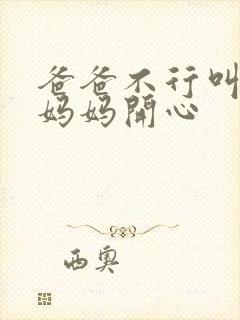 爸爸不行叫
妈妈開心
西奥